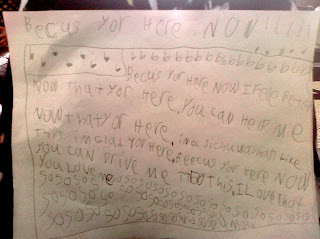 Becus Yor Here NOW!!!!!
bbbbbbbbbbbbbbb
Becus Yor Here NOW I Fele Beter
NOW that yor Here, You can HelP Me
NOW thatyor Here, in a sichuwashan like
this. im Glad yor Here, Beecus yor here NOW
you can Drive me To this, I Love that
You Love me
sososososososososososososo
sosososososososo
sososososososo